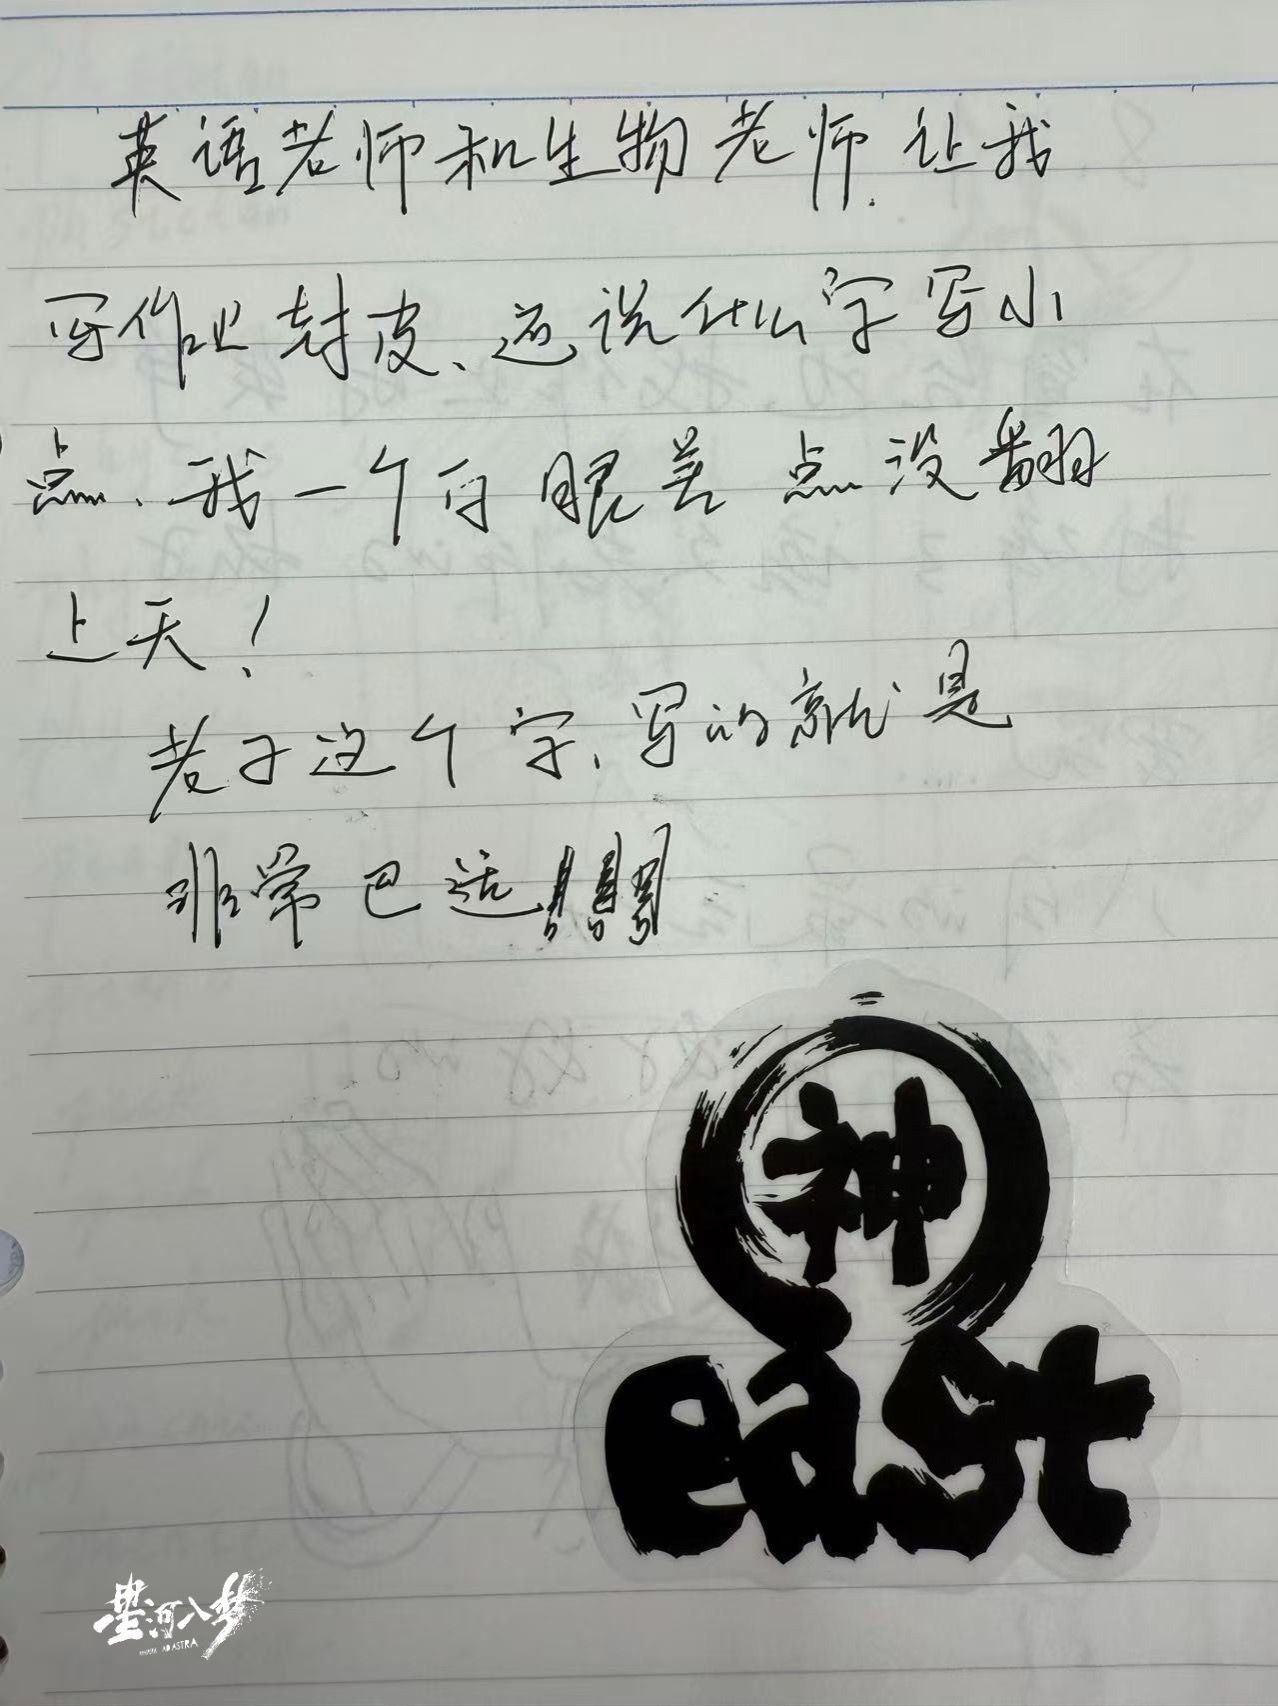 英语老师和生物老师.让我
写作业封皮、还说什么字写小
点、我一个白眼差点没翻
上天！
老子这个字、写的就是
非常巴适！！！
神
east
星河入梦
AD ASTRA